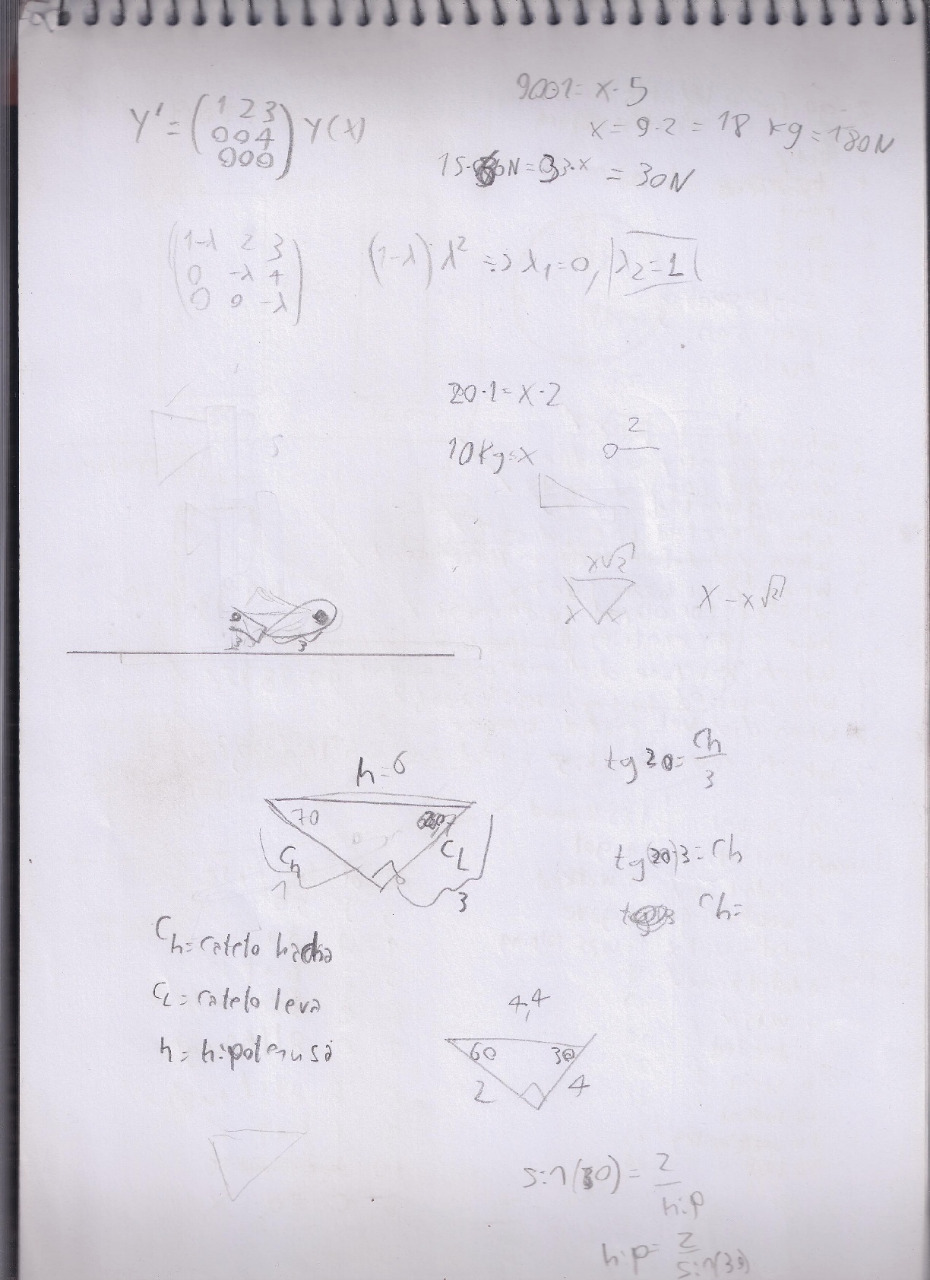 Y' = (1 2 3
0 0 4
0 0 0) Y(x)
x = 9·2 = 18 kg = 180N
= 30N
(1-λ 2 3
0 -λ 4
0 0 -λ)
(1-λ) λ² => λ₁=0, λ₂=1
20·1 = x·2
10kg = x
2
x√2
x x
x - x√2
h=6
70
Ch
CL
1
3
tg 20 = Ch/3
tg(20)·3 = Ch
Ch=
Ch = cateto hacha
CL = cateto leva
h = hipotenusa
4,4
60 30
2 4
sin(30) = 2/hip
hip = 2/sin(30)